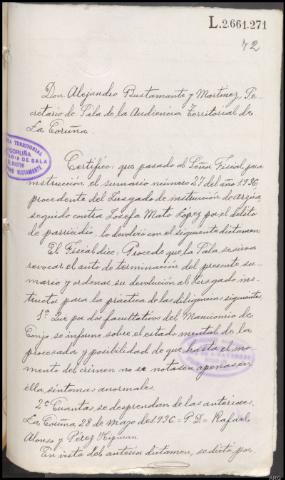 L.2.661.271
42
Don Alejandro Bustamante y Martinez, Se-
cretario de Sala de la Audiencia Territorial de
La Coruña.
Certifico: que pasado al Señor Fiscal para
instrucción el sumario número 27 del año 1936,
procedente del Juzgado de instrucción de
seguido contra Josefa Mato López por el delito
de parricidio, lo devolvió con el siguiente dictamen
El Fiscal dice: Procede que la Sala se sirva
revocar el auto de terminación del presente su-
mario y ordenar su devolución al Juzgado ins-
tructor para la practica de las diligencias siguientes
1ª Que por dos facultativos del Manicomio de
Conjo se informe sobre el estado mental de la
procesada y posibilidad de que hasta el mo-
mento del crimen no se notasen apenas en
ella, sintomas anormales.
2ª Cuantas se desprendan de las anteriores.
La Coruña 28 de Mayo del 936 = P.D = Rafael
Alonso y Pérez Hickman
En vista del anterior dictamen, se dictó por